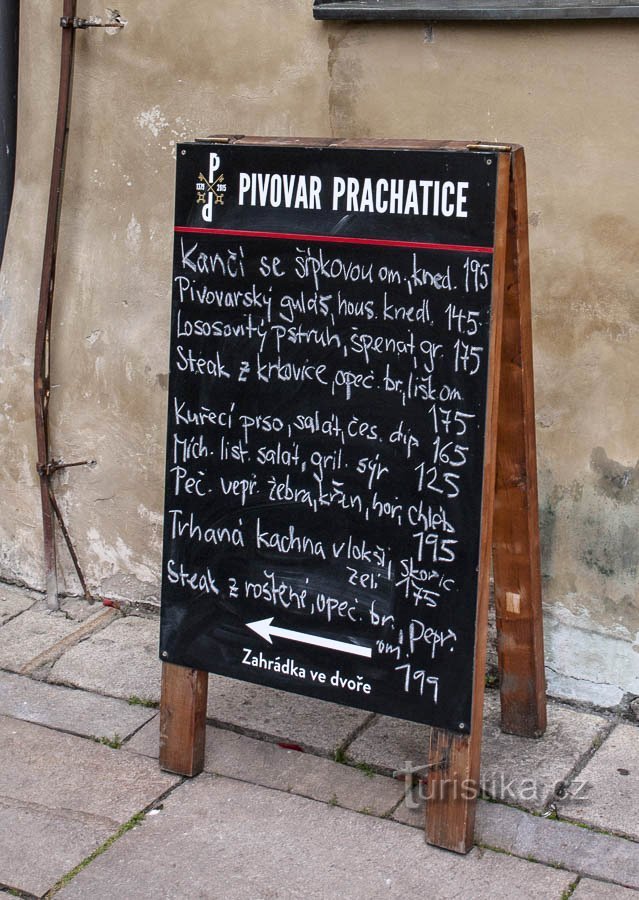 P
1379 2015
P
PIVOVAR PRACHATICE
Kančí se šípkovou om., kned. 195
Pivovarský guláš, hous. knedl. 145
Lososovitý pstruh, špenát, gr. 175
Steak z krkovice, opeč. br., lišk om.
175
Kuřecí prso, salát, čes. dip 165
Mích. list. salát, gril. sýr 125
Peč. vepř. žebra, křen, hoř., chléb
195
Trhaná kachna v lokši,
zelí skoric
175
Steak z roštěné, opeč. br., Pepř.
om. 199
Zahrádka ve dvoře
Turistika.cz